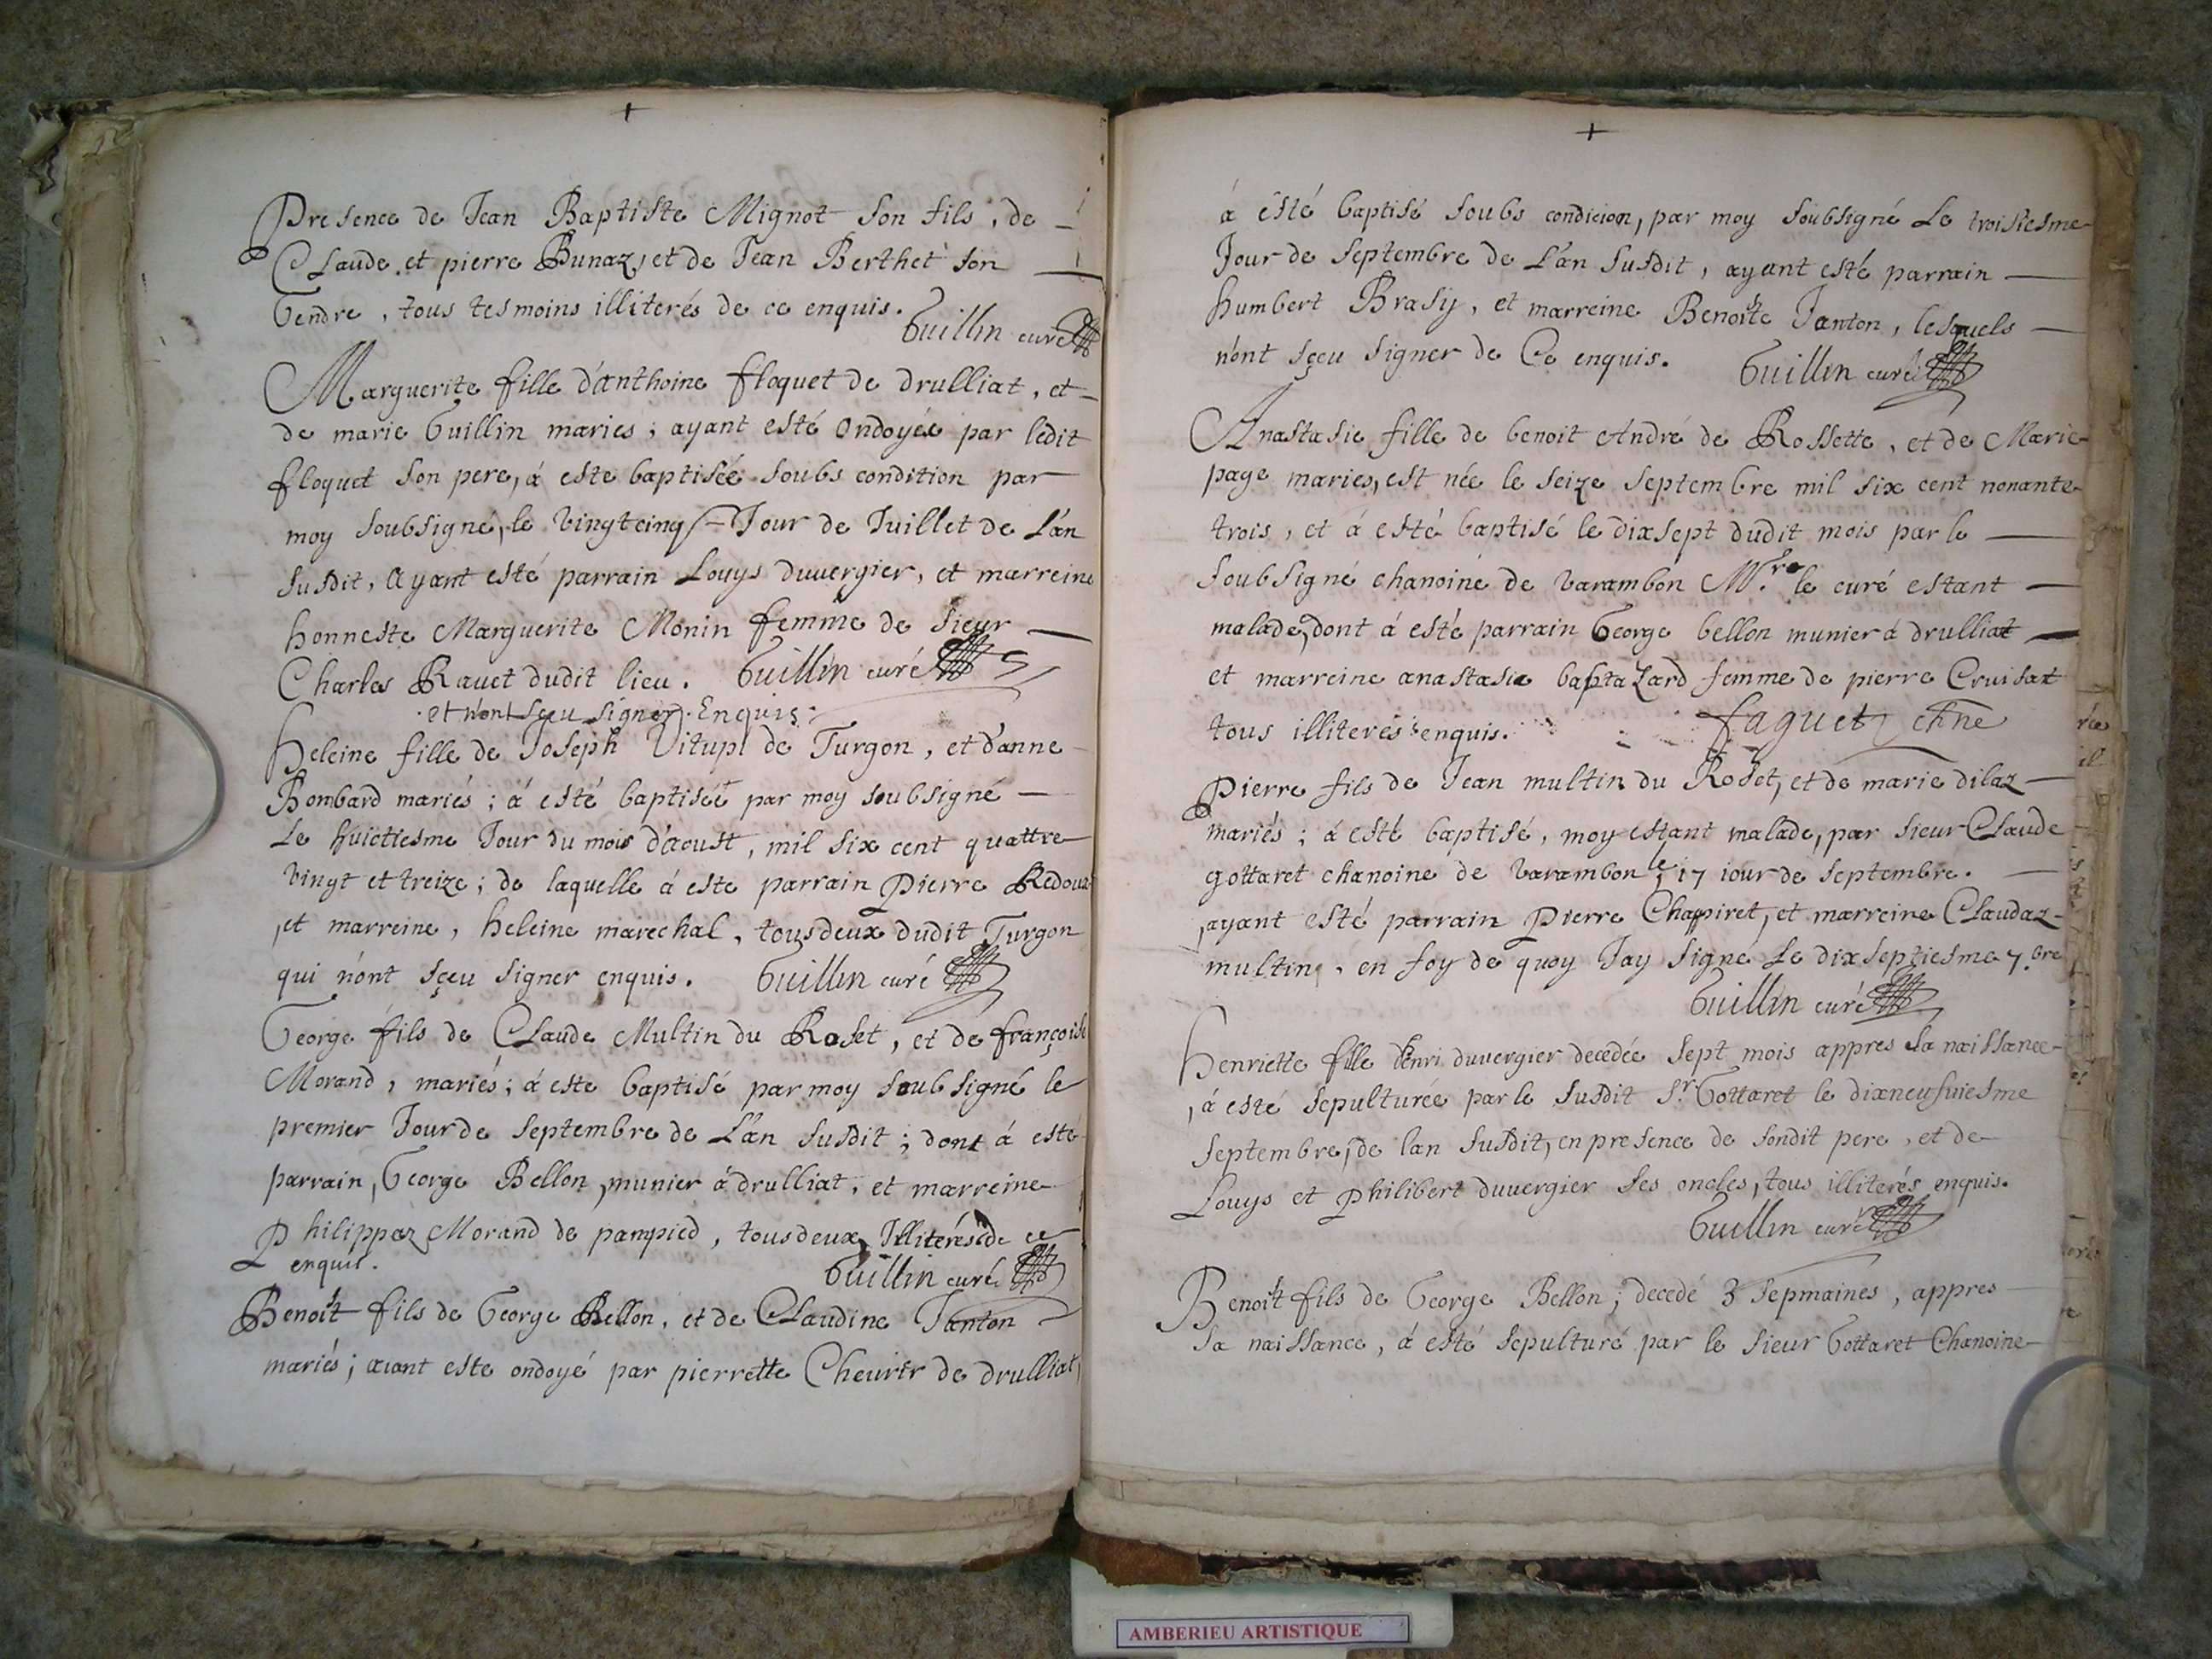 Presence de Jean Baptiste Mignot son fils, de
Claude et pierre Bunaz, et de Jean Berthet son
Gendre, tous tesmoins illiterés de ce enquis.
Guillin curé
Marguerite fille d'anthoine floquet de drulliat, et
de marie Guillin mariés; ayant esté ondoyée par ledit
floquet son pere, á este baptisée soubs condition par
moy soubsigné, le vingtcinq Jour de Juillet de L'an
susdit, ayant esté parrain Louys duvergier, et marreine
honneste Marguerite Monin femme de sieur
Charles Ravet dudit lieu. Guillin curé
et n'ont sçeu signer. Enquis.
Heleine fille de Joseph de Turgon, et d'anne
Bombard mariés; á esté baptisée par moy soubsigné
Le huictiesme Jour du mois d'aoust, mil six cent quattre
vingt et treize; de laquelle á este parrain Pierre
et marreine, heleine marechal, tous deux dudit Turgon
qui n'ont sçeu signer enquis. Guillin curé
George fils de Claude Multin du Roset, et de françoise
Morand, mariés; á este baptisé par moy soubsigné le
premier Jour de septembre de L'an susdit; dont á esté
parrain, George Bellon, munier á drulliat, et marreine
Philippaz Morand de pampied, tous deux Illiterés de ce
enquis.
Guillin curé
Benoit fils de George Bellon, et de Claudine Janton
mariés; aiant este ondoyé par pierrette de drulliat,
á esté baptisé soubs condicion, par moy soubsigné Le troisiesme
Jour de septembre de L'an susdit, ayant esté parrain
humbert Brasy, et marreine Benoîte Janton, lesquels
n'ont sçeu signer de Ce enquis. Guillin curé
Anastasie fille de benoit André de Rossette, et de Marie
page mariés, est née le seize septembre mil six cent nonante
trois, et á esté baptisé le dixsept dudit mois par le
soubsigné chanoine de varambon M.re le curé estant
malade, dont á esté parrain George bellon munier á drulliat
et marreine anastasie baptazard femme de pierre Cruisat
tous illiterés enquis. faguet chne
Pierre fils de Jean multin du Roset, et de marie dilaz
mariés; á esté baptisé, moy estant malade, par sieur Claude
gottaret chanoine de varambon le 17 iour de septembre.
ayant esté parrain Pierre Chapiret, et marreine Claudaz
multin, en foy de quoy Jay signé Le dixseptiesme 7.bre
Guillin curé
Henriette fille d'henri duvergier decedée sept mois appres sa naissance
, á esté sepulturée par le susdit Sr. Gottaret le dixneufuiesme
septembre, de lan susdit, en presence de sondit pere, et de
Louys et Philibert duvergier ses oncles, tous illiterés enquis.
Guillin curé
Benoît fils de George Bellon; decedé 3 sepmaines, appres
sa naissance, á esté sepulturé par le sieur Gottaret Chanoine
AMBERIEU ARTISTIQUE